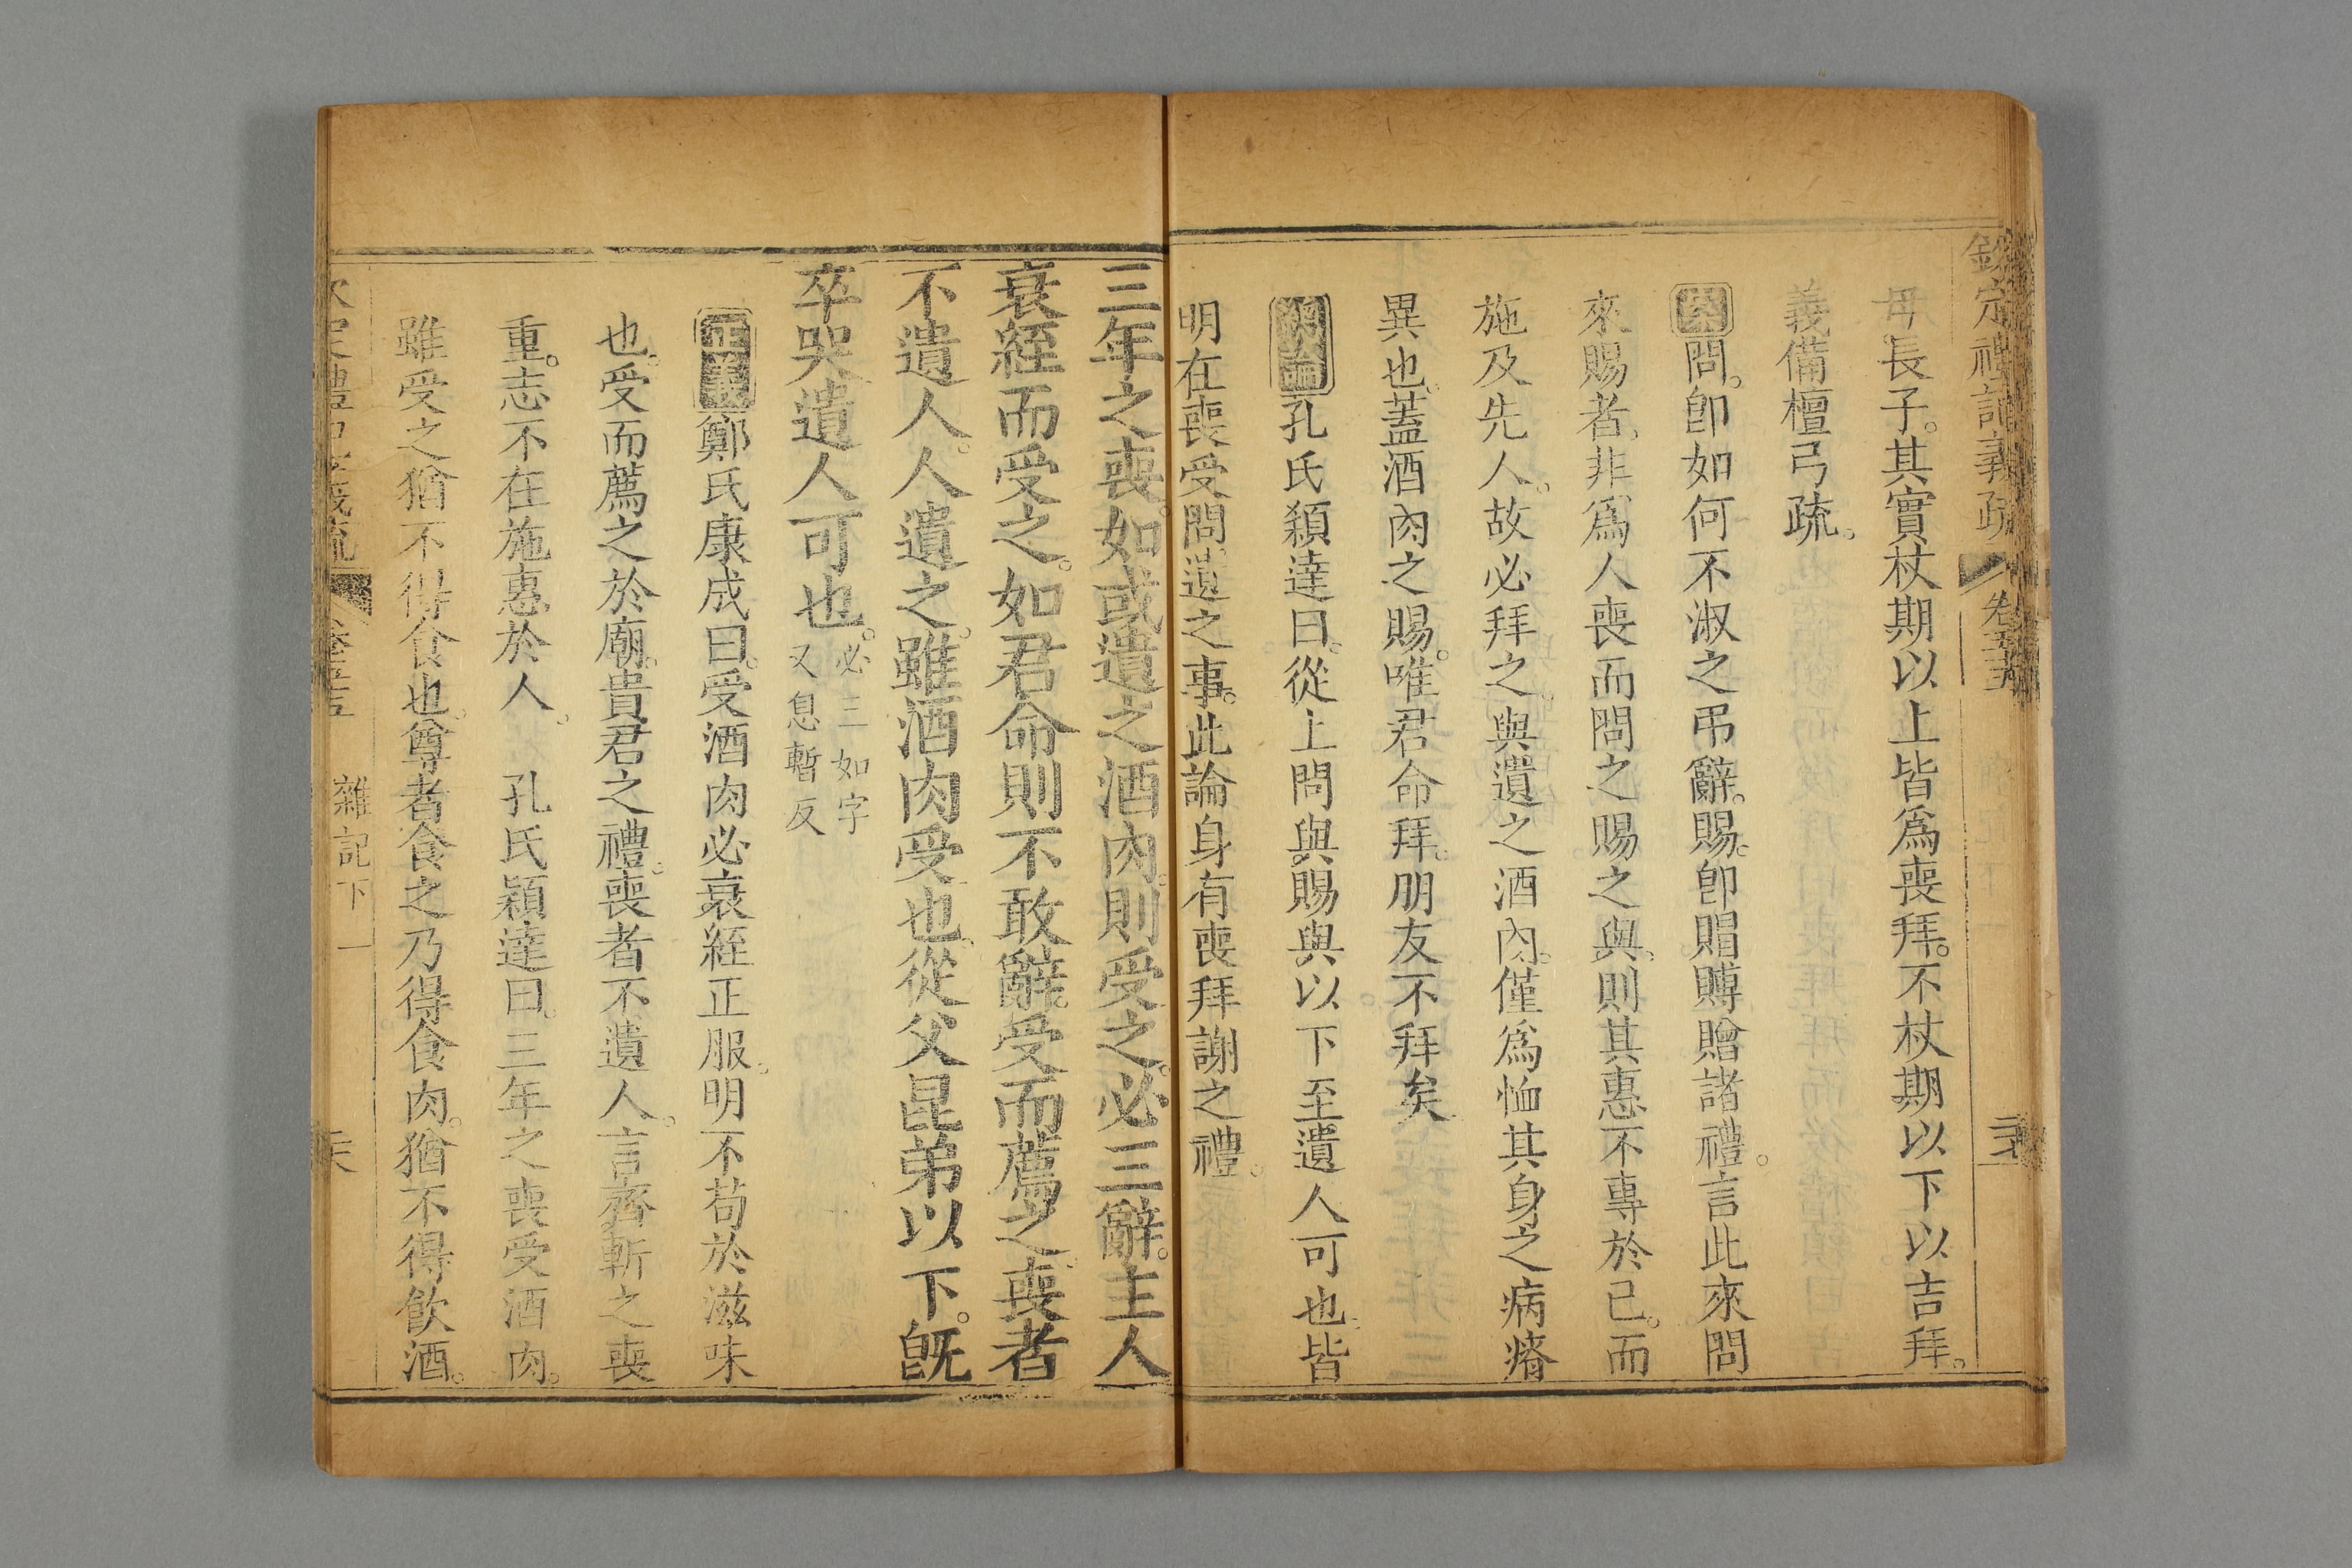 欽定禮記義疏 卷五十五
母。長子。其實杖期以上皆爲喪拜。不杖期以下以吉拜。
義備檀弓疏。
案問。卽如何不淑之弔辭。賜。卽賵賻贈諸禮。言此來問
來賜者。非爲人喪而問之賜之與。則其惠不專於己。而
施及先人。故必拜之。與遺之酒肉。僅爲恤其身之病瘠
異也。蓋酒肉之賜。唯君命拜。朋友不拜矣
總論孔氏穎達曰。從上問與賜與以下至遺人可也。皆
明在喪受問遺之事。此論身有喪拜謝之禮。
三年之喪。如或遺之酒肉。則受之。必三辭。主人
衰絰而受之。如君命則不敢辭。受而薦之。喪者
不遺人。人遺之。雖酒肉受也。從父昆弟以下。旣
卒哭遺人可也。必三如字
又息暫反
正義鄭氏康成曰。受酒肉必衰絰正服。明不苟於滋味
也。受而薦之於廟。貴君之禮。喪者不遺人。言齊斬之喪
重。志不在施惠於人。 孔氏穎達曰。三年之喪受酒肉。
雖受之猶不得食也。尊者食之乃得食肉。猶不得飲酒。
雜記下一